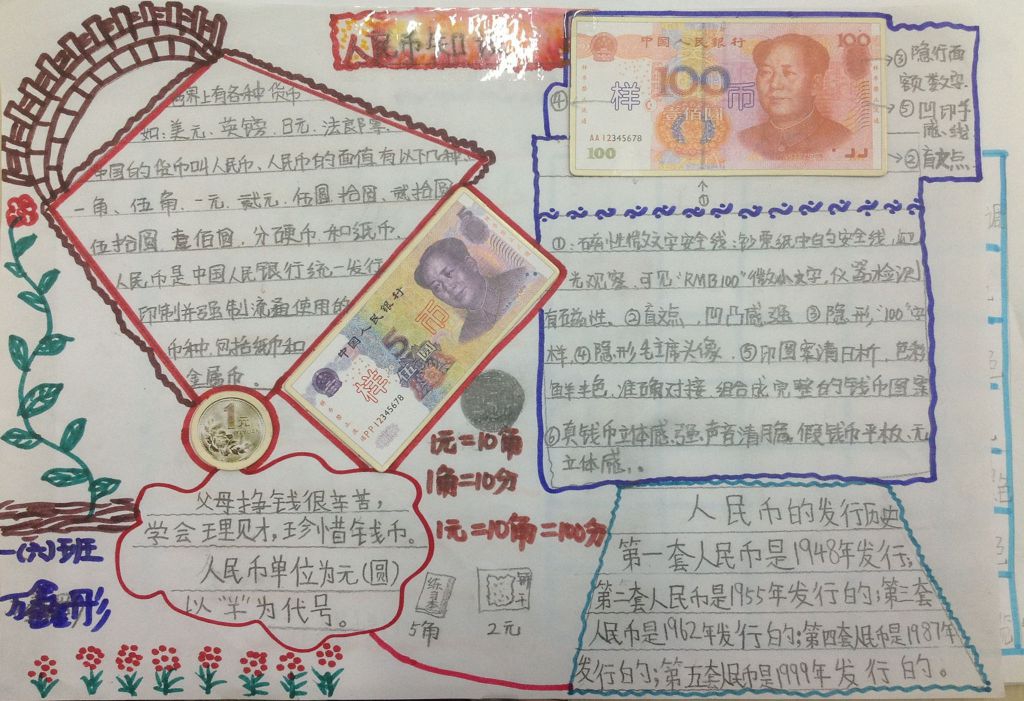 人民币知识
世界上有各种货币
如:美元、英镑、日元、法郎等、
中国的货币叫人民币、人民币的面值有以下几种、
一角、伍角、一元、贰元、伍圆、拾圆、贰拾圆
伍拾圆、壹佰圆,分硬币和纸币、
人民币是中国人民银行统一发行
印制并强制流通使用的
币种,包括纸币和
金属币。
中国人民银行
伍圆
样币
PP12345678
1元
1元=10角
1角=10分
1元=10角=100分
父母挣钱很辛苦,
学会理财,珍惜钱币。
人民币单位为元(圆)
以“¥”为代号。
练习本
5角
饼干
2元
一(六)班
中国人民银行
100
100
壹佰圆
样币
AA12345678
100
④
③隐行面
额数字
⑤凹印手
感线
②盲文点
↑
①
①:磁性微文字安全线:钞票纸中的安全线,迎
光观察,可见“RMB100”微小文字,仪器检测
有磁性、②盲文点,凹凸感强 ③隐形“100”字
样、④隐形毛主席头像、⑤印图案清日析,色彩
鲜艳,准确对接,组合成完整的钱币图案
⑥真钱币立体感强,声音清脆,假钱币平板、无
立体感。
人民币的发行历史
第一套人民币是1948年发行;
第二套人民币是1955年发行的;第三套
人民币是1962年发行的;第四套人民币是1987年
发行的;第五套人民币是1999年发行的。